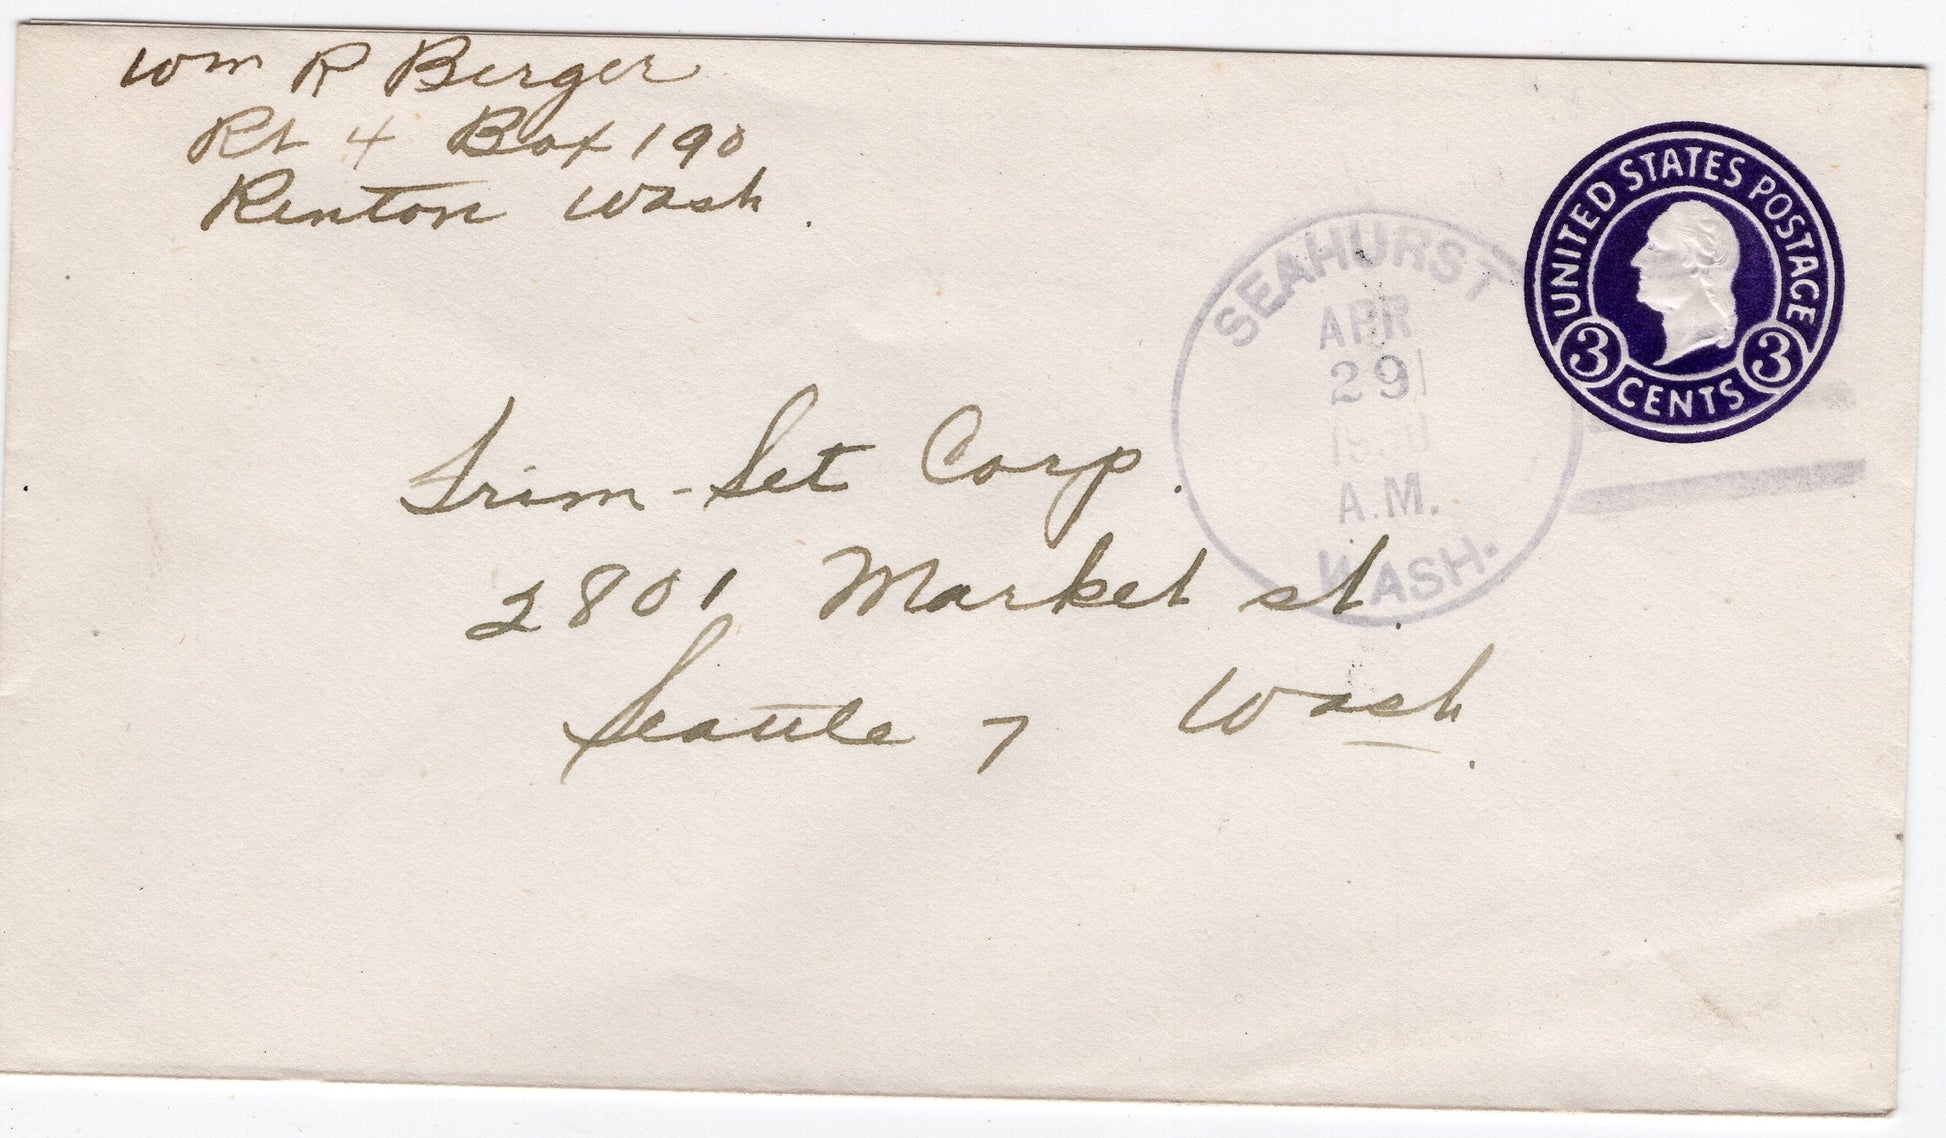 Wm R Berger
Rt 4 Box 190
Renton Wash.
UNITED STATES POSTAGE
3 CENTS 3
SEAHURST
APR
29
A.M.
WASH.
Trim-Set Corp.
2801 Market st.
Seattle 7 Wash.